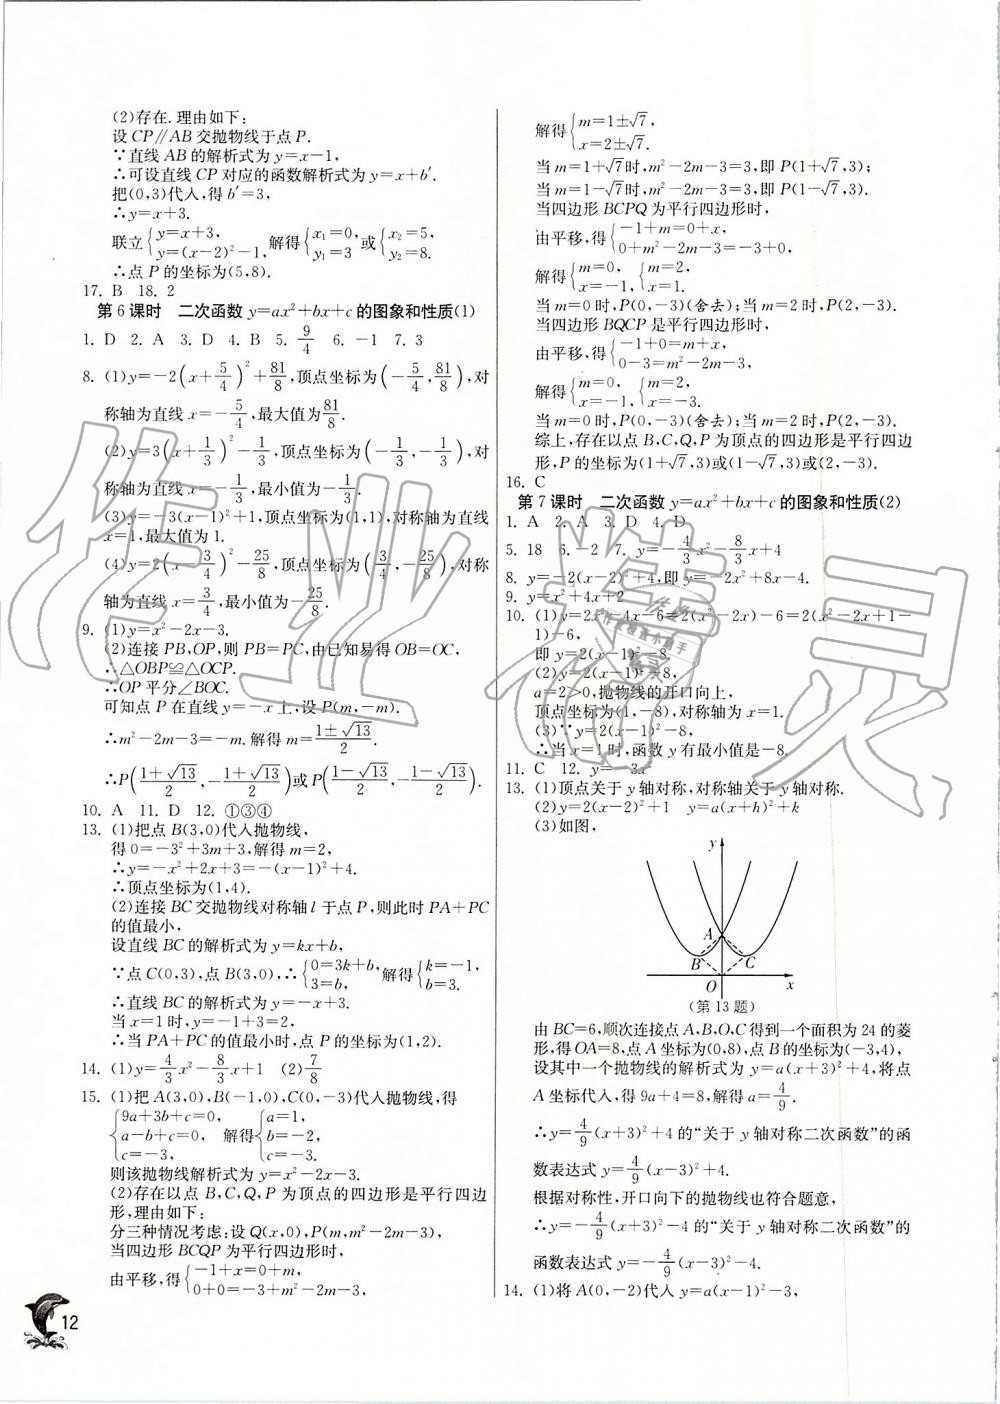 (2)存在.理由如下:
设 CP∥AB 交抛物线于点 P.
∵直线 AB 的解析式为 y=x−1,
∴可设直线 CP 对应的函数解析式为 y=x+b′.
把(0,3)代入,得 b′=3,
∴y=x+3.
联立{y=x+3, y=(x−2)²−1, 解得{x₁=0, y₁=3 或{x₂=5, y₂=8.
∴点 P 的坐标为(5,8).
17. B 18. 2
第 6 课时 二次函数 y=ax²+bx+c 的图象和性质(1)
1. D 2. A 3. D 4. B 5. 9/4 6. −1 7. 3
8. (1)y=−2(x+5/4)²+81/8,顶点坐标为(−5/4,81/8),对
称轴为直线 x=−5/4,最大值为81/8.
(2)y=3(x+1/3)²−1/3,顶点坐标为(−1/3,−1/3),对
称轴为直线 x=−1/3,最小值为−1/3.
(3)y=−3(x−1)²+1,顶点坐标为(1,1),对称轴为直线
x=1,最大值为 1.
(4)y=2(x−3/4)²−25/8,顶点坐标为(3/4,−25/8),对称
轴为直线 x=3/4,最小值为−25/8.
9. (1)y=x²−2x−3.
(2)连接 PB,OP,则 PB=PC,由已知易得 OB=OC,
∴△OBP≌△OCP.
∴OP 平分∠BOC.
可知点 P 在直线 y=−x 上,设 P(m,−m).
∴m²−2m−3=−m.解得 m=(1±√13)/2.
∴P((1+√13)/2,−(1+√13)/2)或 P((1−√13)/2,−(1−√13)/2).
10. A 11. D 12. ①③④
13. (1)把点 B(3,0)代入抛物线,
得 0=−3²+3m+3,解得 m=2,
∴y=−x²+2x+3=−(x−1)²+4.
∴顶点坐标为(1,4).
(2)连接 BC 交抛物线对称轴 l 于点 P,则此时 PA+PC
的值最小,
设直线 BC 的解析式为 y=kx+b,
∵点 C(0,3),点 B(3,0),∴{0=3k+b, 3=b, 解得{k=−1, b=3.
∴直线 BC 的解析式为 y=−x+3.
当 x=1 时,y=−1+3=2,
∴当 PA+PC 的值最小时,点 P 的坐标为(1,2).
14. (1)y=4/3x²−8/3x+1 (2)7/8
15. (1)把 A(3,0),B(−1,0),C(0,−3)代入抛物线,得
{9a+3b+c=0, a−b+c=0, c=−3, 解得{a=1, b=−2, c=−3.
则该抛物线解析式为 y=x²−2x−3.
(2)存在以点 B,C,Q,P 为顶点的四边形是平行四边
形,理由如下:
分三种情况考虑:设 Q(x,0),P(m,m²−2m−3),
当四边形 BCQP 为平行四边形时,
由平移,得{−1+x=0+m, 0+0=−3+m²−2m−3,
12
解得{m=1±√7, x=2±√7.
当 m=1+√7时,m²−2m−3=3,即 P(1+√7,3);
当 m=1−√7时,m²−2m−3=3,即 P(1−√7,3).
当四边形 BCPQ 为平行四边形时,
由平移,得{−1+m=0+x, 0+m²−2m−3=−3+0,
解得{m=0, x=−1, {m=2, x=1.
当 m=0 时,P(0,−3)(舍去);当 m=2 时,P(2,−3).
当四边形 BQCP 是平行四边形时,
由平移,得{−1+0=m+x, 0−3=m²−2m−3,
解得{m=0, x=−1, {m=2, x=−3.
当 m=0 时,P(0,−3)(舍去);当 m=2 时,P(2,−3).
综上,存在以点 B,C,Q,P 为顶点的四边形是平行四边
形,P 的坐标为(1+√7,3)或(1−√7,3)或(2,−3).
16. C
第 7 课时 二次函数 y=ax²+bx+c 的图象和性质(2)
1. A 2. A 3. D 4. D
5. 18 6. −2 7. y=−4/3x²−8/3x+4
8. y=−2(x−2)²+4,即 y=−2x²+8x−4.
9. y=x²+4x+2
10. (1)y=2x²−4x−6=2(x²−2x)−6=2(x²−2x+1−
1)−6,
即 y=2(x−1)²−8.
(2)y=2(x−1)²−8,
a=2>0,抛物线的开口向上,
顶点坐标为(1,−8),对称轴为 x=1.
(3)∵y=2(x−1)²−8.
∴当 x=1 时,函数 y 有最小值是−8.
11. C 12. y=−3x²
13. (1)顶点关于 y 轴对称,对称轴关于 y 轴对称.
(2)y=2(x−2)²+1 y=a(x+h)²+k
(3)如图,
y
A
B C
O x
(第 13 题)
由 BC=6,顺次连接点 A,B,O,C 得到一个面积为 24 的菱
形,得 OA=8,点 A 坐标为(0,8),点 B 的坐标为(−3,4),
设其中一个抛物线的解析式为 y=a(x+3)²+4,将点
A 坐标代入,得 9a+4=8,解得 a=4/9.
∴y=4/9(x+3)²+4 的“关于 y 轴对称二次函数”的函
数表达式 y=4/9(x−3)²+4.
根据对称性,开口向下的抛物线也符合题意,
∴y=−4/9(x+3)²−4 的“关于 y 轴对称二次函数”的
函数表达式 y=−4/9(x−3)²−4.
14. (1)将 A(0,−2)代入 y=a(x−1)²−3,
作业精灵